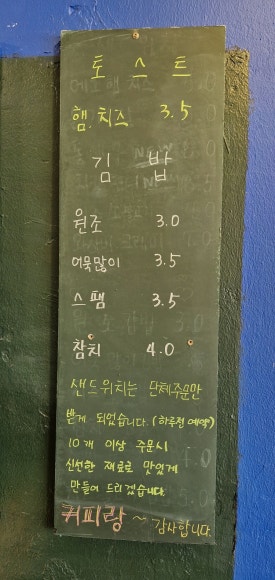 토스트
햄.치즈 3.5
김밥
원조 3.0
어묵많이 3.5
스팸 3.5
참치 4.0
샌드위치는 단체주문만
받게 되었습니다. (하루전 예약)
10개 이상 주문시
신선한 재료로 맛있게
만들어 드리겠습니다
커피랑~ 감사합니다